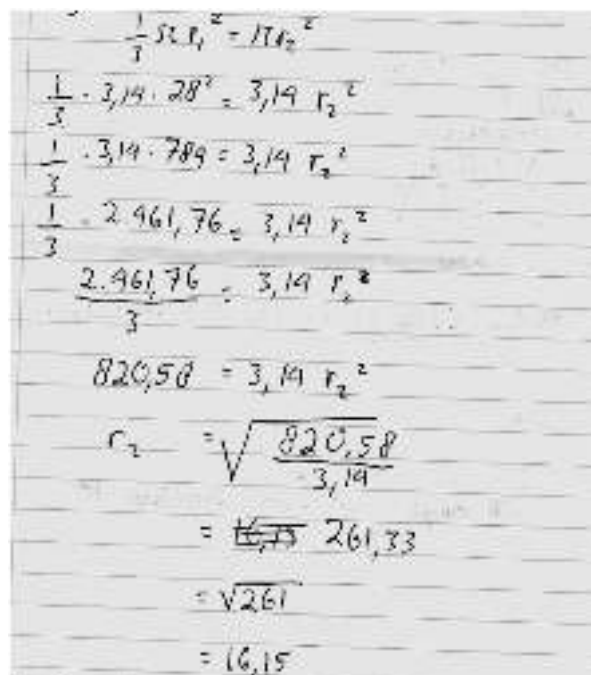 1/3 π r₁² = π r₂²
1/3 · 3,14 · 28² = 3,14 r₂²
1/3 · 3,14 · 784 = 3,14 r₂²
1/3 · 2.461,76 = 3,14 r₂²
2.461,76/3 = 3,14 r₂²
820,58 = 3,14 r₂²
r₂ = √(820,58/3,14)
= 261,33
= √261
= 16,15